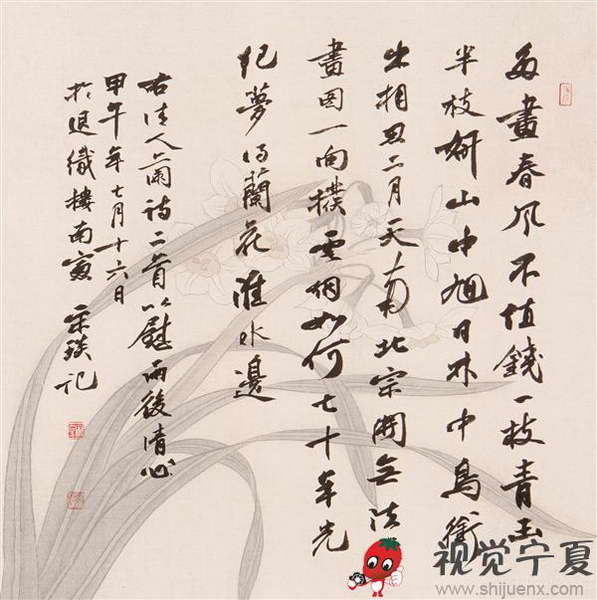 多畫春风不值錢一枝青玉
半枝妍山中旭日林中鳥銜
出相思二月天南北宗開无法
畫图一向撲雲烟如何七十年光
纪夢得蘭花淮水邊
右清人蘭诗二首以慰雨後清心
甲午年七月十六日
於退織樓南窗 宋琰记
视觉宁夏
www.shijuenx.com